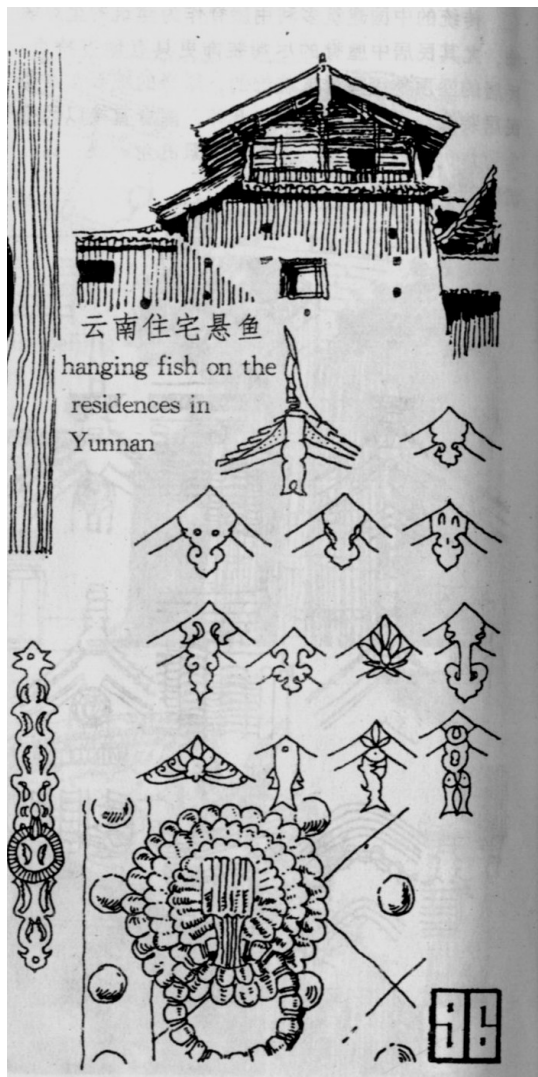 云南住宅悬鱼
hanging fish on the
residences in
Yunnan
96